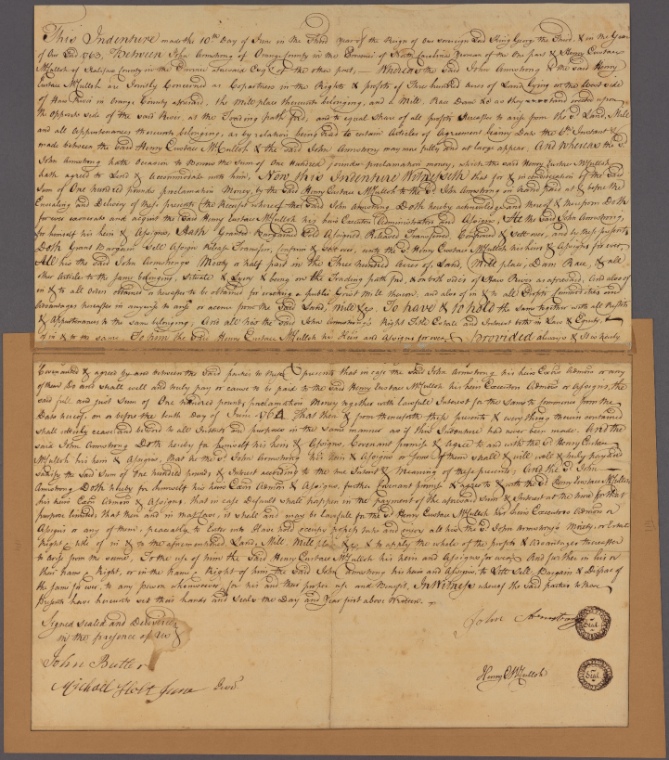 This Indenture made the 10th Day of June in the Third Year of the Reign of our Sovereign Lord King Georg the Third, & in the Year
of Our Lord 1763, Between John Armstrong of Orange County in the Province of North Carolina of the One part & Henry Eustace
McCulloh of Halifax County in the Province aforesaid Esqr. of the other part, Whereas the said John Armstrong & the said Henry
Eustace McCulloh are Jointly Concerned as Copartners in the Rights & profits of Three hundred acres of Land Lying on the side
of Haw River in Orange County aforesaid, the Mill place therein belonging, and a Mill, Race Dam &c as they
the opposite side of the said River, at the Trading path ford, and to equal Share of all profits thereafter to arise from the sd. Land, Mill
and all appurtenances thereunto belonging, as by relation being had to certain Articles of Agreement bearing Date the 6th Instant &
made between the said Henry Eustace McCulloh & the said John Armstrong may more fully and at large appear. And Whereas the sd.
John Armstrong hath Occasion to Borrow the Sum of One Hundred pounds proclamation money, which the said Henry Eustace McCulloh
hath agreed to Lend & accommodate with him, Now this Indenture Witnesseth that for & in consideration of the said
Sum of One hundred pounds proclamation Money by the said Henry Eustace McCulloh to the sd. John Armstrong in hand paid at & before the
Ensealing and Delivery of these presents (the Receipt whereof the said John Armstrong Doth hereby acknowledge) and thereof & therefrom Doth
for ever exonerate and acquit the said Henry Eustace McCulloh his heirs Executors Administrators and Assigns, He the said John Armstrong,
for himself his heirs & Assigns, Hath Granted Bargained Sold Assigned Released Transferred Confirmed & Sett over, and by these presents
Doth Grant Bargain Sell Assign Release Transfer, Confirm & Sett over, unto the sd. Henry Eustace McCulloh his heirs & Assigns for ever
All his the said John Armstrongs Moiety or half part in the Three hundred Acres of Land, Mill place, Dam Race, & all
other Articles to the same belonging, Situate & Lying & being on the Trading path ford, & on both sides of Haw River as aforesaid, And also of
in & to all orders obtained or hereafter to be obtained for a publick Grist Mill thereon, and also of in & to all
advantages hereafter in anywise to arise or accrue from the said Land, Mill &c. To have & to hold the Same together with all the profits
& Appurtenances to the Same belonging, And all his the said John Armstrongs Right Title Estate and Interest both in Law & Equity,
of in & to the same To him the said Henry Eustace McCulloh his heirs and Assigns for ever, provided always & It is hereby
Covenanted & agreed by and between the said parties to these presents that in case the said John Armstrong his heirs Execrs Admors or any
of them Do and shall well and truly pay or cause to be paid to the said Henry Eustace McCulloh his heirs Executors Admors or Assigns, the
said full and just Sum of One hundred pounds proclamation Money together with lawfull Interest for the Same to commence from the
Date hereof on or before the tenth Day of June 1764 That then & from thenceforth these presents & everything therein contained
shall utterly cease and be void to all Intents and purposes in the Same manner as if this Indenture had never been made. And the
said John Armstrong Doth hereby for himself his heirs & Assigns, Covenant promise & agree to and with the sd. Henry Eustace
McCulloh his heirs & Assigns, that he the sd. John Armstrong his heirs & Assigns or some of them shall & will well & truly pay and
satisfy the said Sum of One hundred pounds & Interest according to the true Intent & Meaning of these presents, And the sd. John
Armstrong Doth hereby for himself his heirs Execrs Admors & Assigns, further Covenant promise & agree to & with the sd. Henry Eustace McCulloh
his heirs Execrs Admors & Assigns, that in case Default shall happen in the payment of the aforesaid Sum & Interest at the time for that
purpose limited, that then and in that case, it shall and may be lawful to the sd. Henry Eustace McCulloh his heirs Executors Admors or
Assigns or any of them, peaceably to Enter into Have hold occupy possess and enjoy all him the sd. John Armstrongs Moiety, or Estate
Right & title of in & to the aforementioned Land, Mill, Mill place, &c & to apply the whole of the profits & advantages thereafter
to arise from the same, To the use of him the said Henry Eustace McCulloh his heirs and Assigns for ever. And further in his or
their Name, or Right, or in the Name, or Right of him the said John Armstrong his heirs and Assigns, to Lett Sell Bargain & dispose of
the same for ever, to any person whomsoever, for his and their proper use and Benefit. In Witness whereof the said parties to these
Presents have hereunto set their hands and Seals the Day and Year first above Written
Signed Sealed and Delivered
in the presence of us
John Armstrong Seal
John Butler
Henry E McCulloh Seal
Michael Holt Junr Jurat